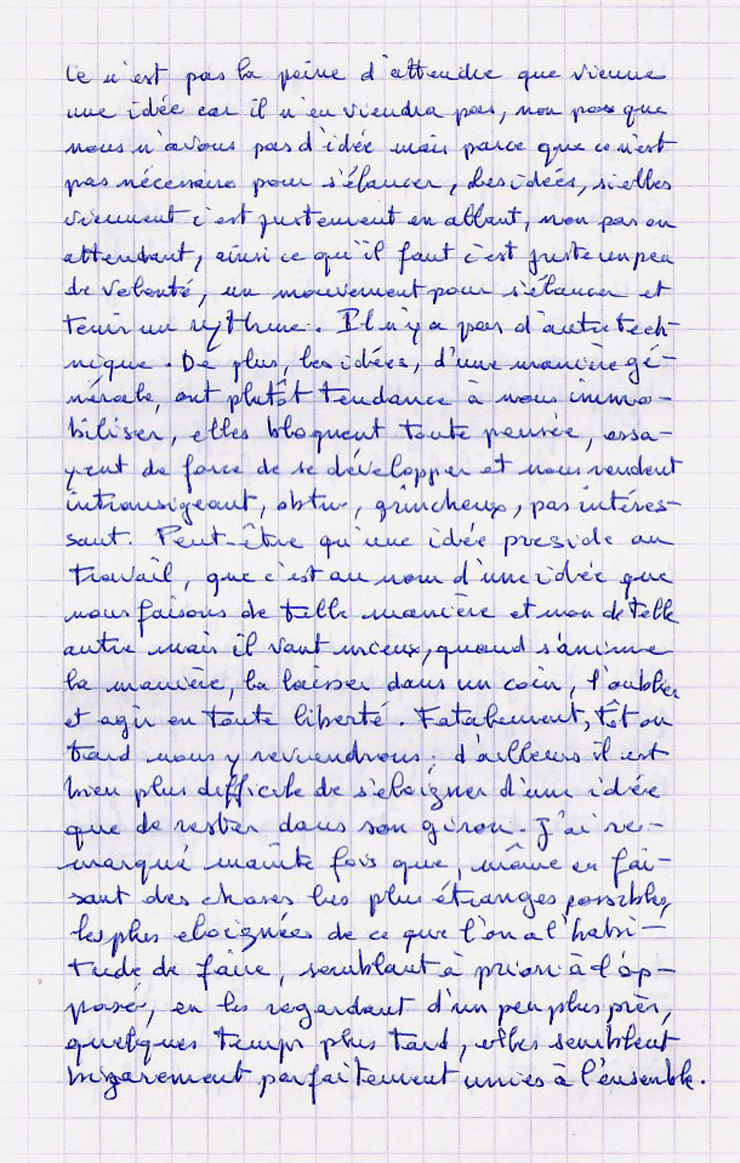 Ce n'est pas la peine d'attendre que vienne
une idée car il n'en viendra pas, non pas que
nous n'avons pas d'idée mais parce que ce n'est
pas nécessaire pour s'élancer, des idées, si elles
viennent c'est justement en allant, non pas en
attendant, ainsi ce qu'il faut c'est juste un peu
de volonté, un mouvement pour s'élancer et
tenir un rythme. Il n'y a pas d'autre tech-
nique. De plus, les idées, d'une manière gé-
nérale, ont plutôt tendance à nous immo-
biliser, elles bloquent toute pensée, essa-
yent de force de se développer et nous rendent
intransigeant, obtus, grincheux, pas intéres-
sant. Peut-être qu'une idée preside au
travail, que c'est au nom d'une idée que
nous faisons de telle manière et non de telle
autre mais il vaut mieux, quand s'anime
la manière, la laisser dans un coin, l'oublier
et agir en toute liberté. Fatalement, tôt ou
tard nous y reviendrons; d'ailleurs il est
bien plus difficile de s'eloigner d'une idée
que de rester dans son giron. J'ai re-
marqué mainte fois que, même en fai-
sant des choses les plus étranges possibles,
les plus eloignées de ce que l'on a l'habi-
tude de faire, semblant à priori à l'op-
posé, en les regardant d'un peu plus près,
quelques temps plus tard, elles semblent
bizarement parfaitement unies à l'ensemble.